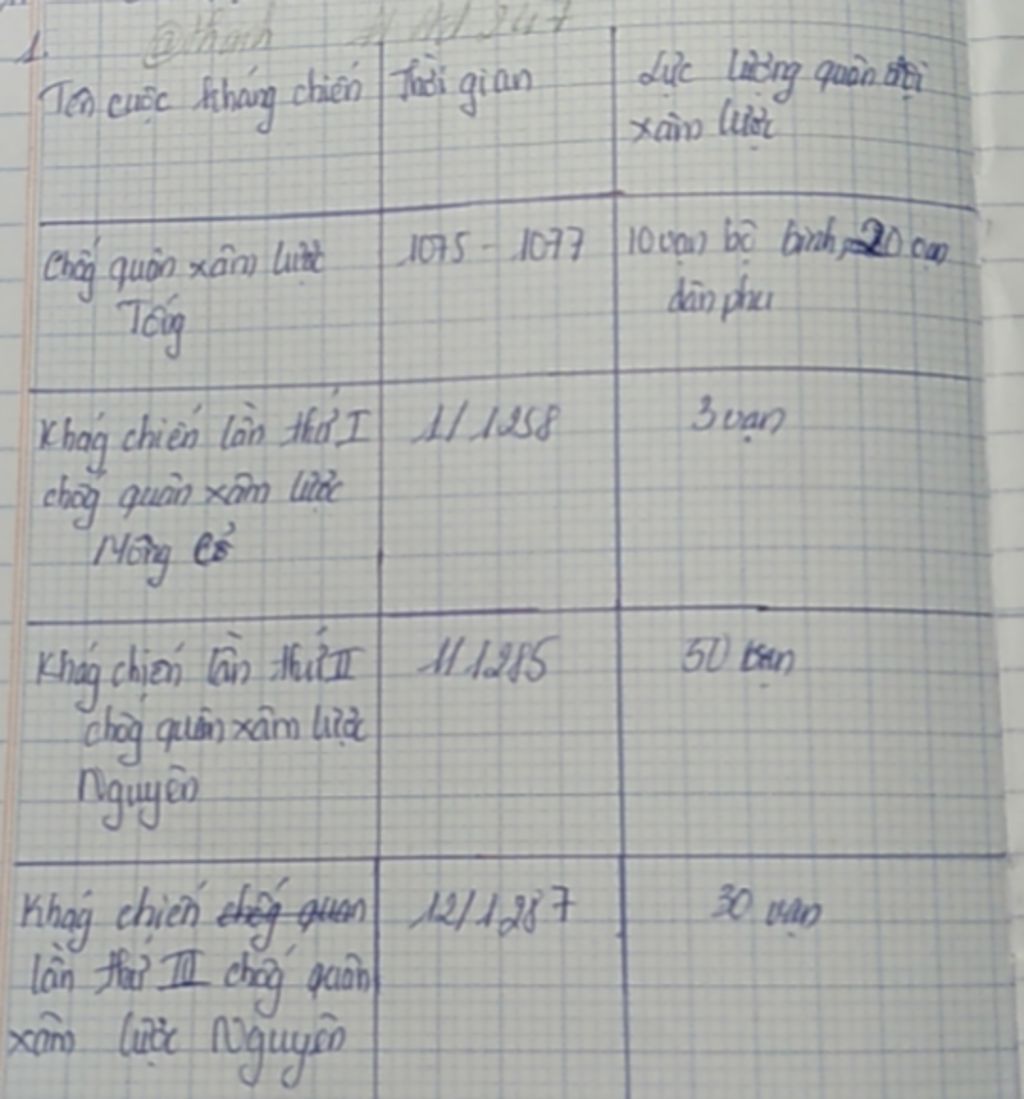 1.
@thanh
Tên cuộc kháng chiến
Thời gian
Lực lượng quân đội
xâm lược
Chốg quân xâm lược
Tốg
1075 - 1077
10 vạn bộ binh, 20 vạn
dân phu
Khág chiến lần thứ I
chốg quân xâm lược
Mông Cổ
1/1258
3 vạn
Khág chiến lần thứ II
chốg quân xâm lược
Nguyên
1/1285
50 vạn
Khág chiến chốg quân
lần thứ III chốg quân
xâm lược Nguyên
12/1287
30 vạn